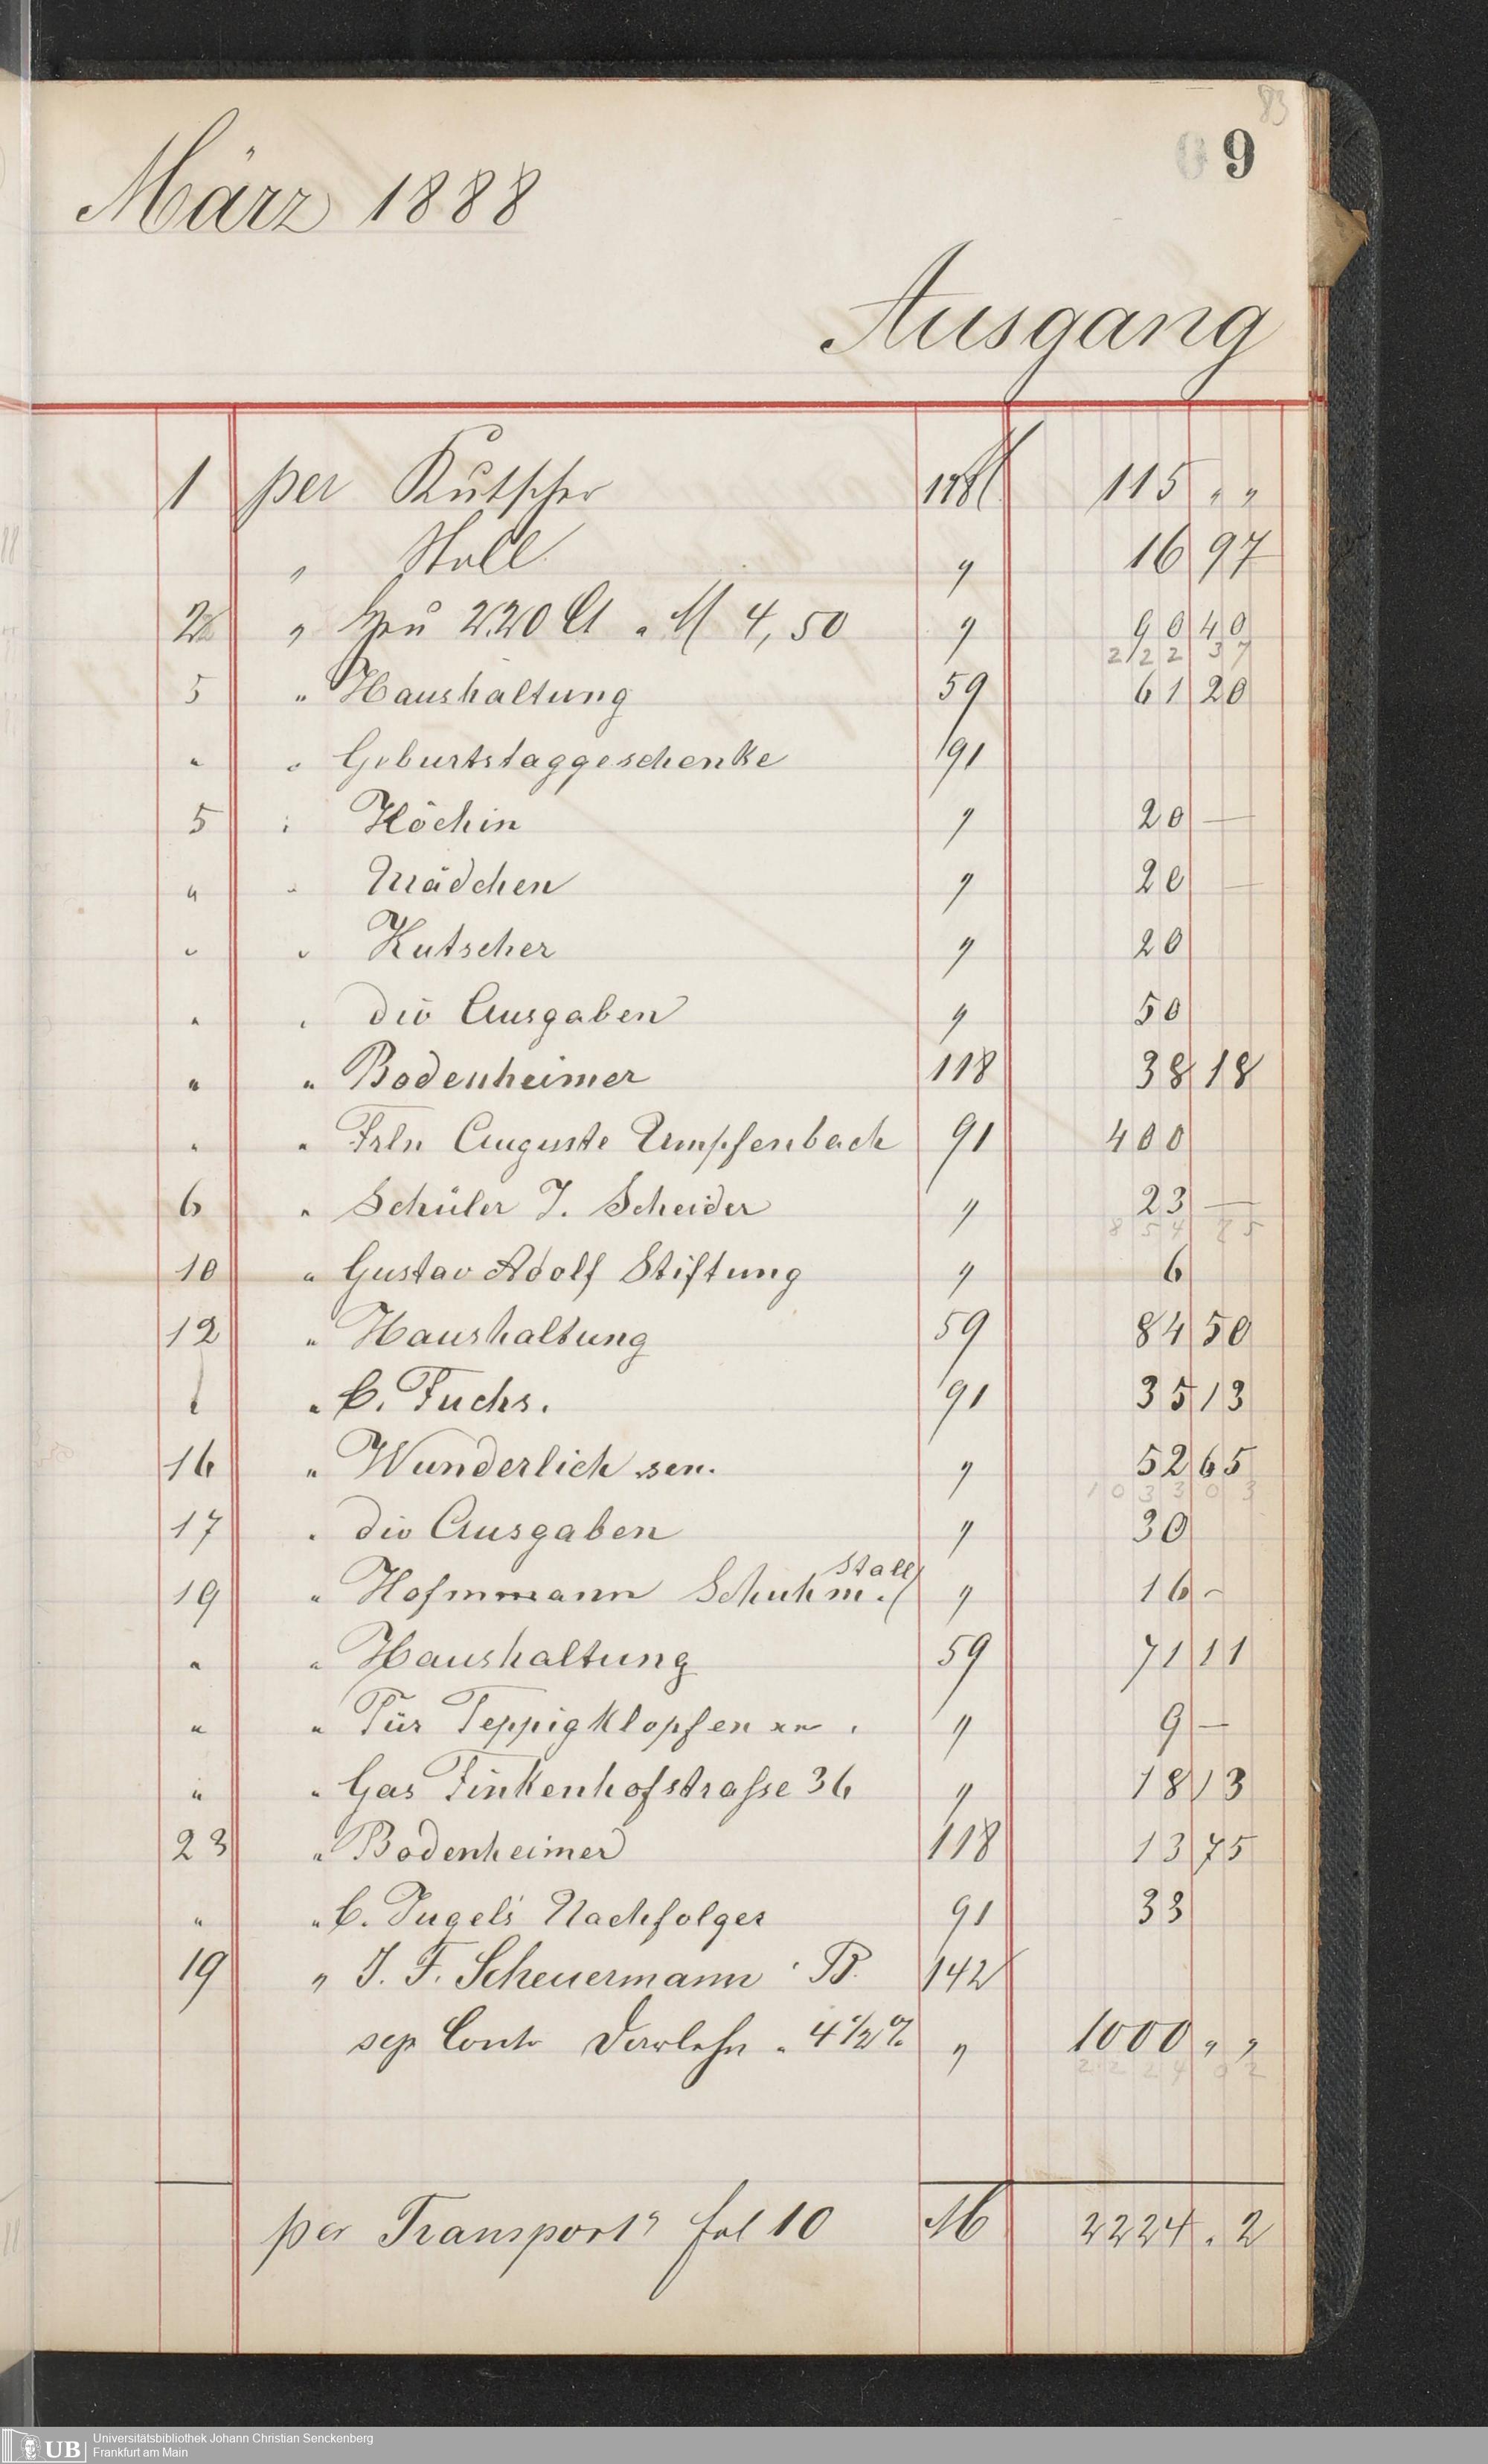 83
9
März 1888
Ausgang
1 per Kutscher 118 M 115 " "
" Stall " 16 97
2 " Heu 2220 Ct a M 4,50 " 90 40
222 37
5 " Haushaltung 59 61 20
" " Geburtstaggeschenke 91
5 " Köchin " 20 —
" " Mädchen " 20 —
" " Kutscher " 20
" " div Ausgaben " 50
" " Bodenheimer 118 38 18
" " Frln Auguste Umpfenbach 91 400
6 " Schüler J. Scheider " 23 —
854 75
10 " Gustav Adolf Stiftung " 6
12 " Haushaltung 59 84 50
" C. Fuchs. 91 35 13
16 " Wunderlich sen. " 52 65
1033 03
17 " div Ausgaben " 30
19 " Hofmmann Schuhm. Stall " 16 -
" " Haushaltung 59 71 11
" " Für Teppigklopfen " 9 —
" " Gas Finkenhofstraße 36 " 18 13
23 " Bodenheimer 118 13 75
" " C. Jugels Nachfolger 91 33
19 " J. F. Scheuermann B. 142
sep Conto Darlehn a 4 1/2 % " 1000 " "
2224 02
per Transport fol 10 M 2224 . 2
UB Universitätsbibliothek Johann Christian Senckenberg
Frankfurt am Main